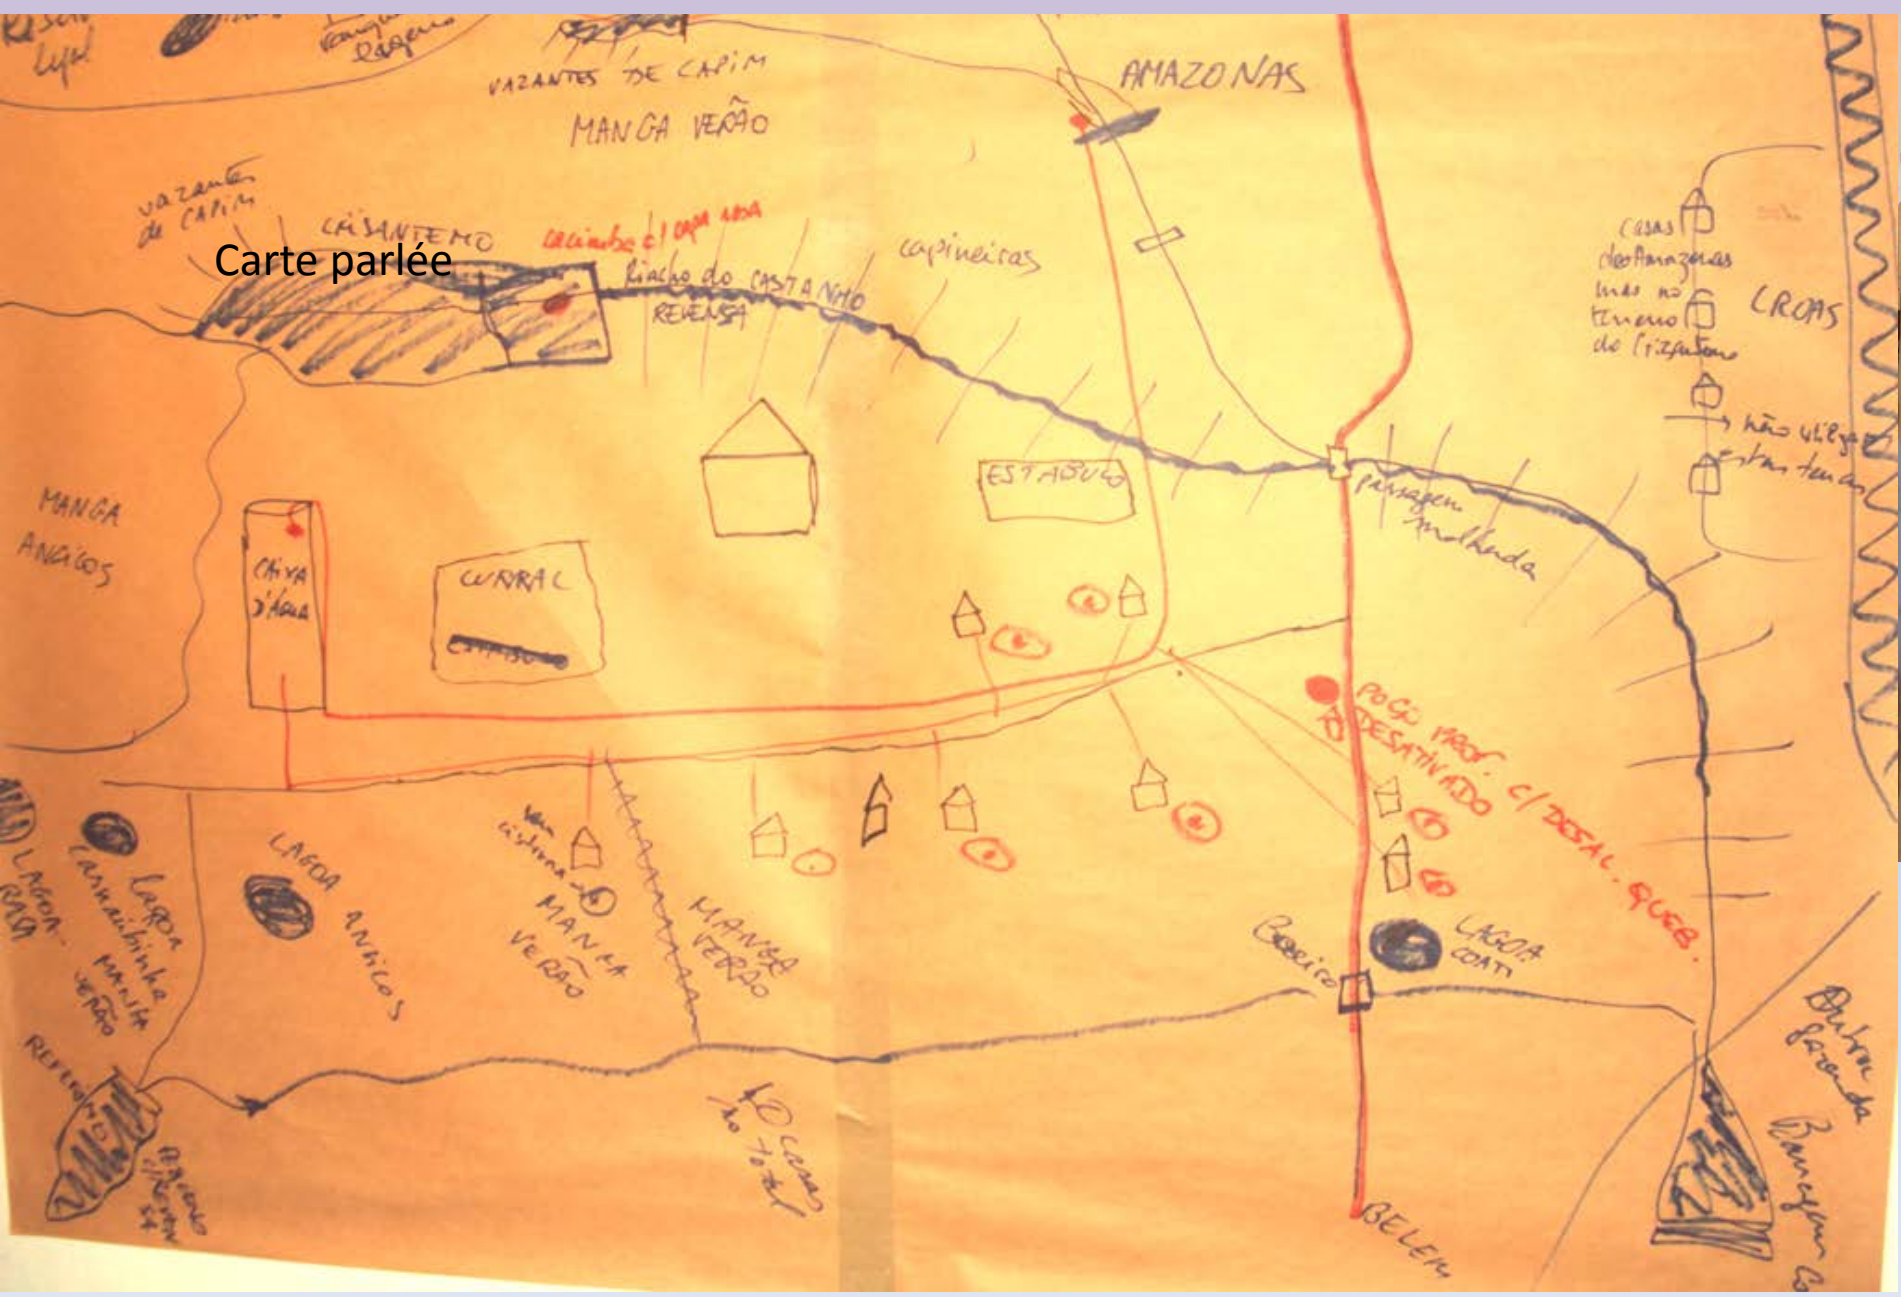 legal
VAZANTES DE CAPIM
MANGA VERÃO
AMAZONAS
vazantes
de CAPIM
CRISANTEMO
Carte parlée
cacimba c/
Riacho do CASTANHO
REVENSA
capineiras
casas
do Amazonas
mas no
terreno
do Crizantemo
CROAS
não utiliza
estas terras
MANGA
ANGICOS
CAIXA
D'ÁGUA
CURRAL
ESTABULO
passagem
molhada
POÇO PROF. C/ DESAL. QUEB.
DESATIVADO
LAGOA
RASA
Lagoa
Carnaubinha
MANGA
VERÃO
LAGOA ANGICOS
sem
cisterna
MANGA
VERÃO
MANGA
VERÃO
Boeiro
LAGOA
COATI
10 casas
no total
BELEM
Outra
fazenda